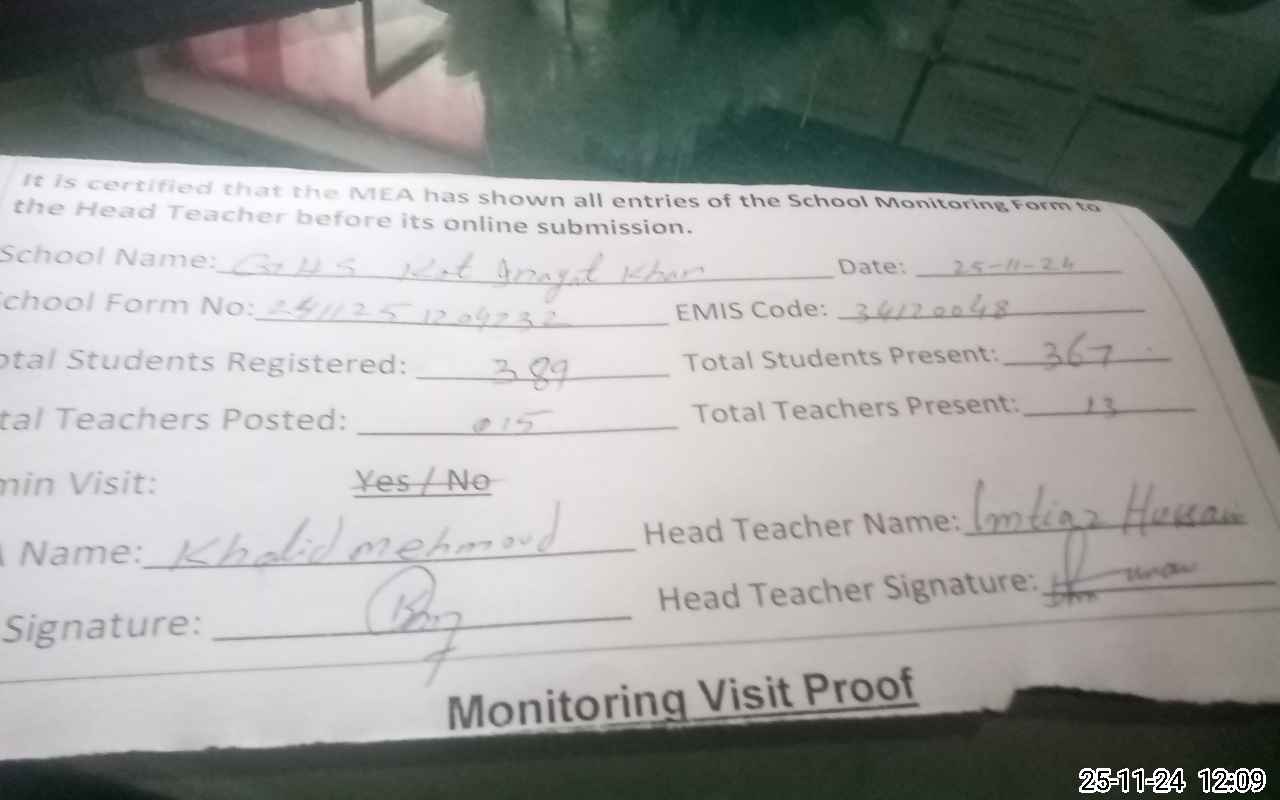 It is certified that the MEA has shown all entries of the School Monitoring Form to
the Head Teacher before its online submission.
School Name: GHS Kot Inayat Khan Date: 25-11-24
chool Form No: 2411251204232 EMIS Code: 34120048
otal Students Registered: 389 Total Students Present: 367
tal Teachers Posted: 015 Total Teachers Present: 13
min Visit: Yes / No
Name: Khalid mehmood Head Teacher Name: Imtiaz Hussain
Signature: Head Teacher Signature:
Monitoring Visit Proof
25-11-24 12:09